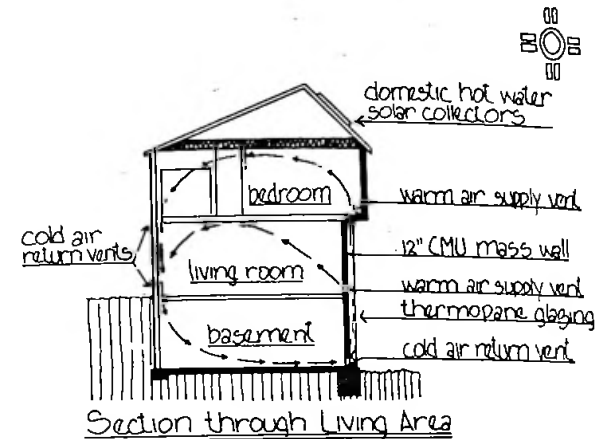 domestic hot water
solar collectors
bedroom
warm air supply vent
cold air
return vents
12" CMU mass wall
living room
warm air supply vent
thermopane glazing
basement
cold air return vent
Section through Living Area